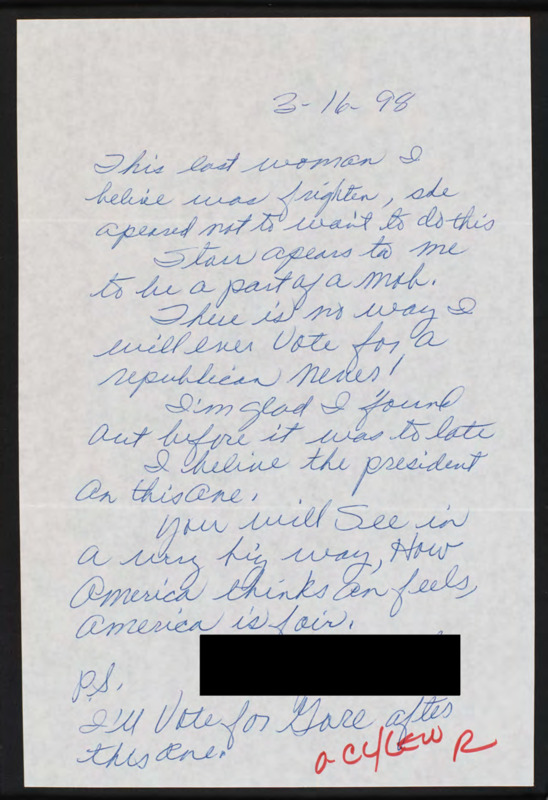 3-16-98
This last woman I
belive was frighten, she
apeared not to want to do this
Starr apears to me
to be a part of a mob.
There is no way I
will ever Vote for a
republican never!
I'm glad I found
out before it was to late
I belive the president
on this one.
You will See in
a very big way, How
America thinks an feels,
America is fair.
P.S.
I'll Vote for Gore after
this one.
R